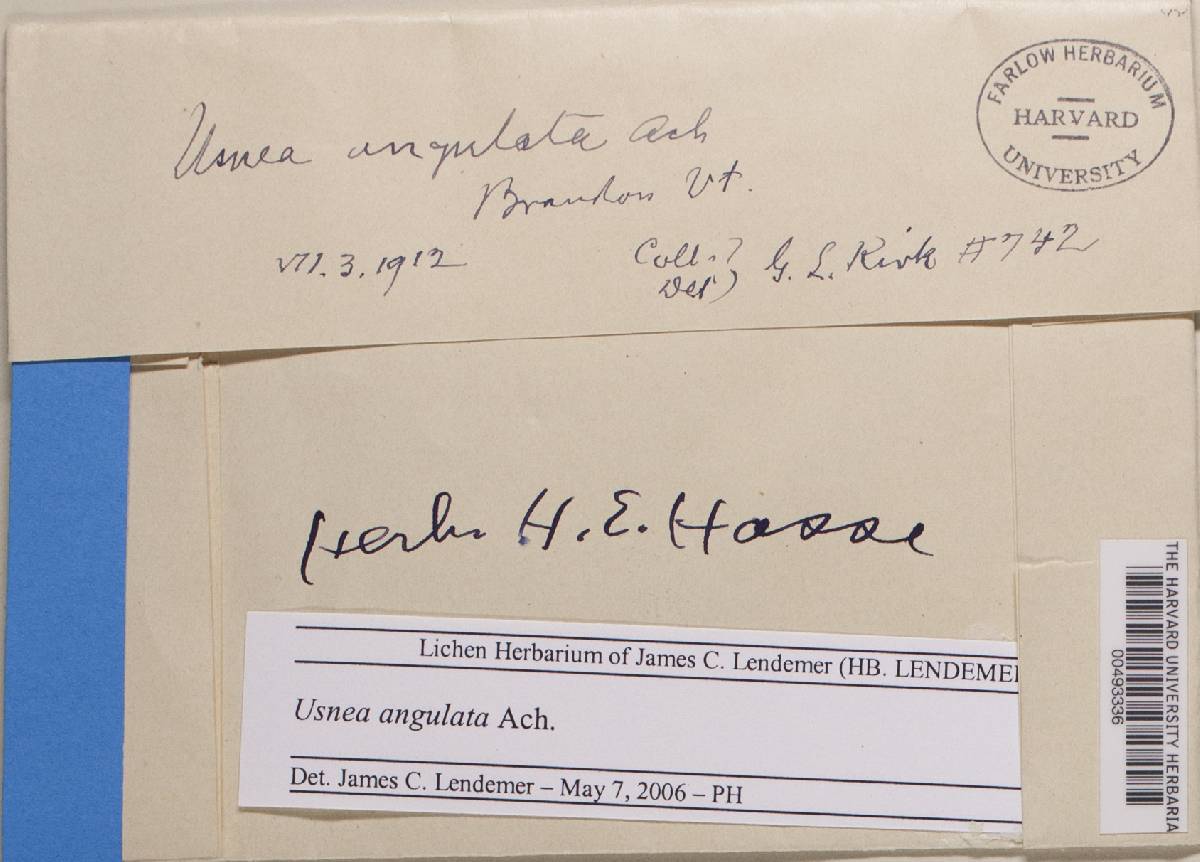 Usnea angulata Ach
Brandon Vt.
VII.3.1912
Coll. } G. L. Kirk #742
Det }
FARLOW HERBARIUM
HARVARD
UNIVERSITY
Herb. H. E. Hasse
Lichen Herbarium of James C. Lendemer (HB. LENDEMER
Usnea angulata Ach.
Det. James C. Lendemer – May 7, 2006 – PH
THE HARVARD UNIVERSITY HERBARIA
00493336